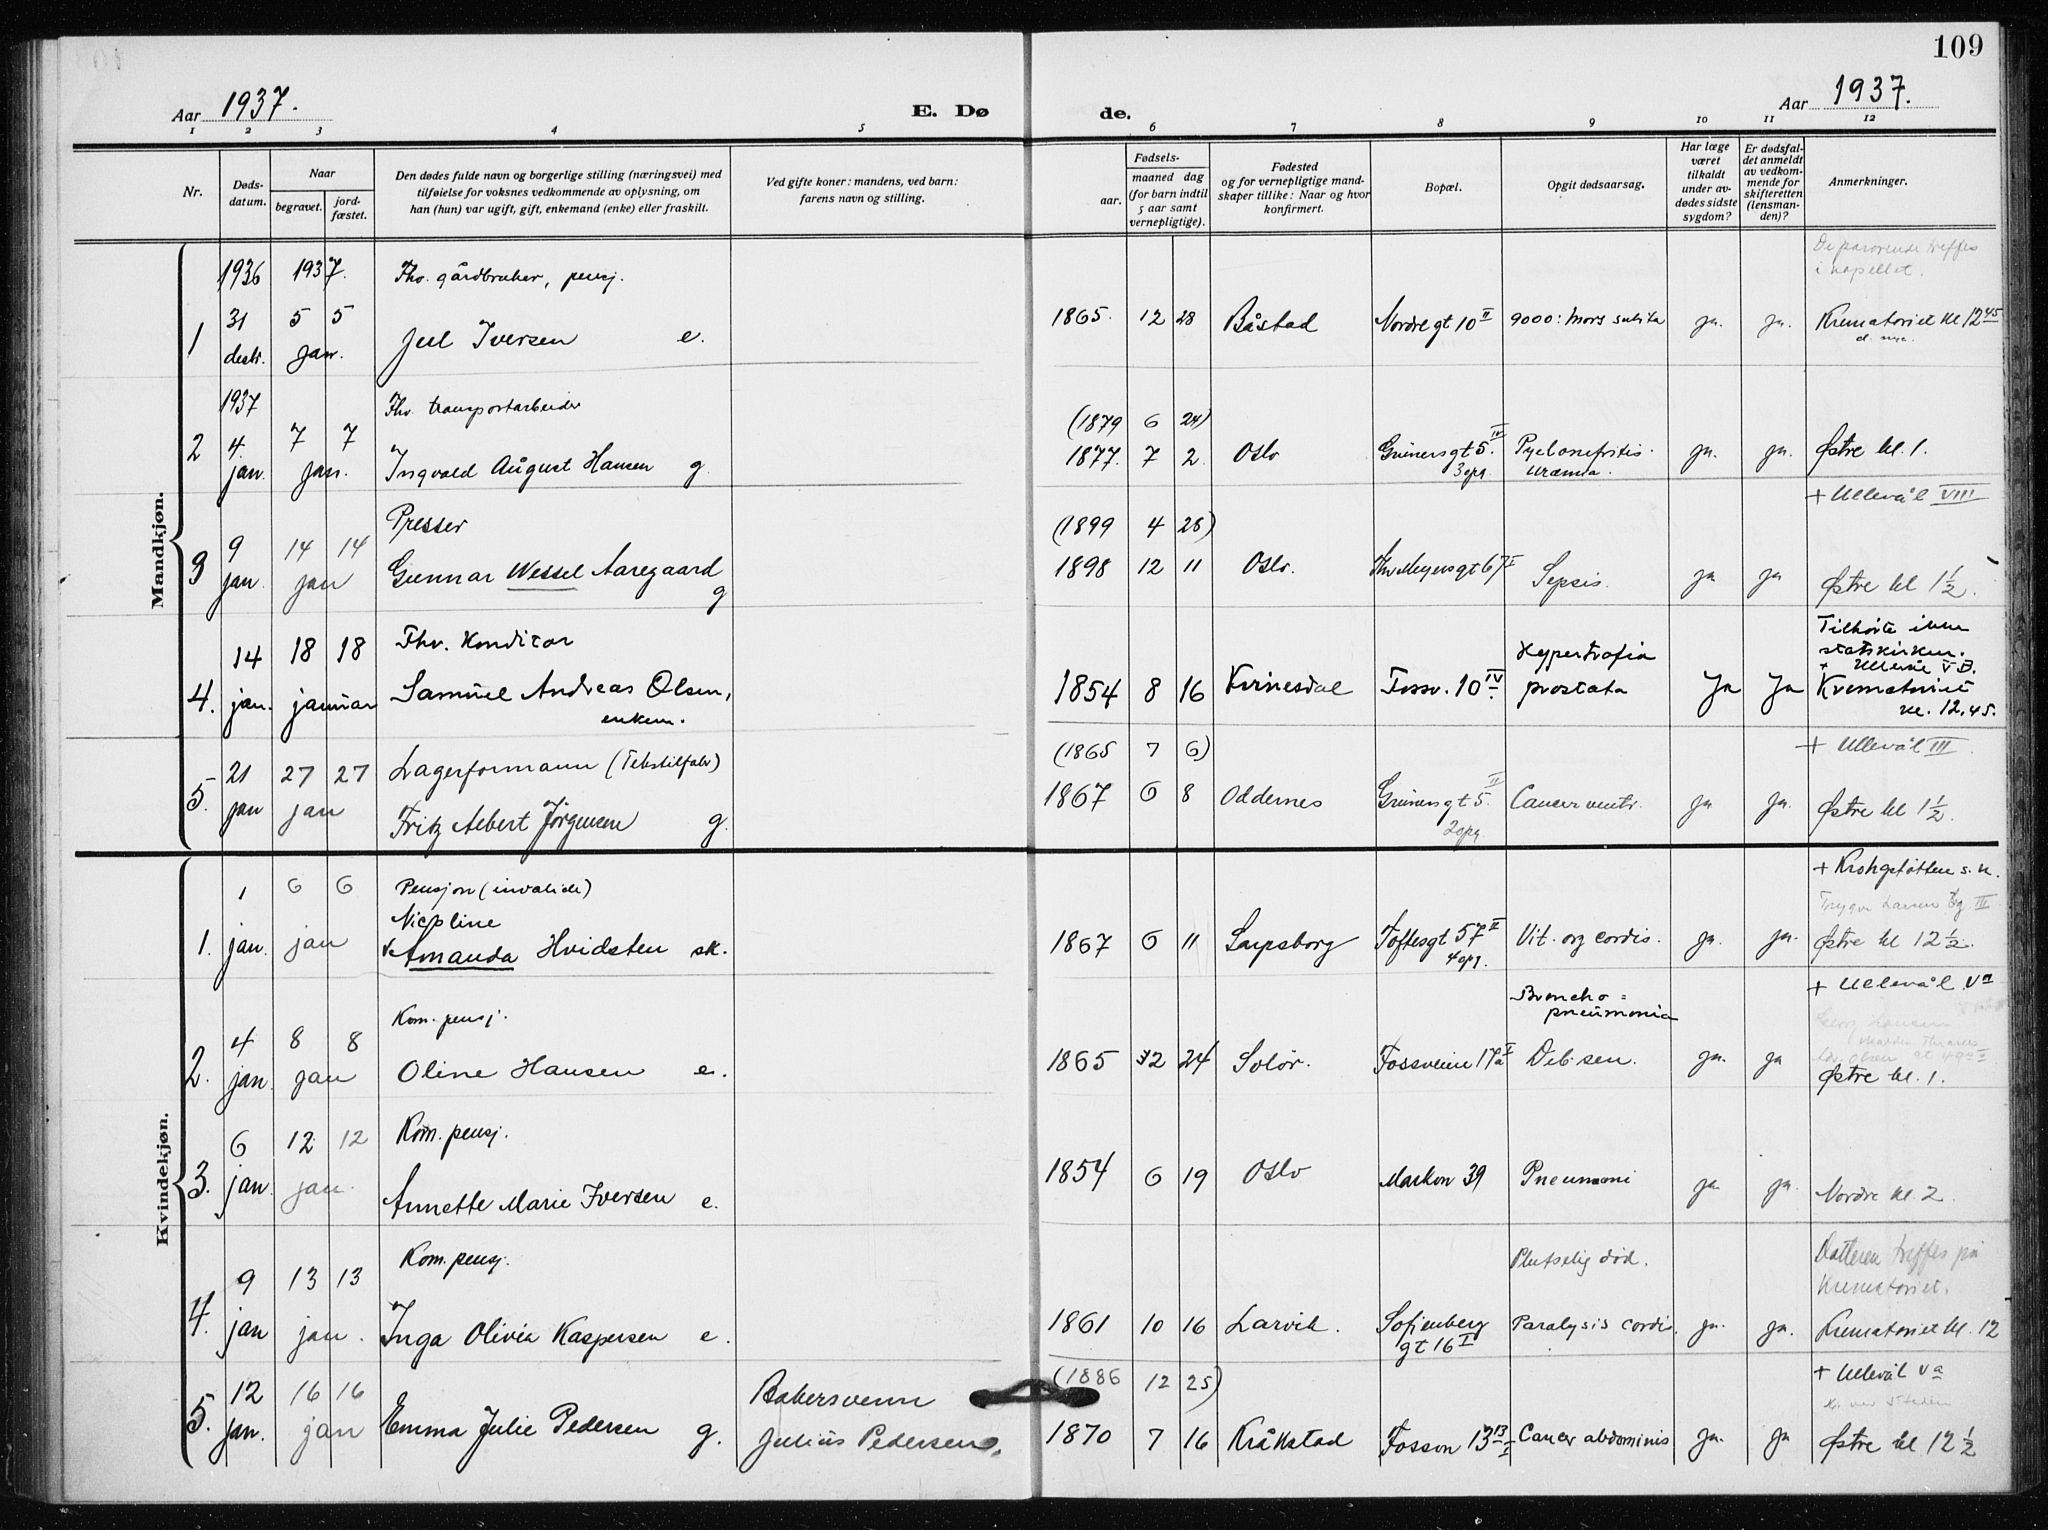 109
Aar 1937.
E. Dø
de.
Aar 1937.
1 2 3 4 5 6 7 8 9 10 11 12
Nr.
Døds-
datum.
Naar
begravet.
jord-
fæstet.
Den dødes fulde navn og borgerlige stilling (næringsvei) med
tilføielse for voksnes vedkommende av oplysning, om
han (hun) var ugift, gift, enkemand (enke) eller fraskilt.
Ved gifte koner: mandens, ved barn:
farens navn og stilling.
Fødsels-
aar.
maaned dag
(for barn indtil
5 aar samt
vernepligtige).
Fødested
og for vernepligtige mand-
skaper tillike: Naar og hvor
konfirmert.
Bopæl.
Opgit dødsaarsag.
Har læge
været
tilkaldt
under av-
dødes sidste
sygdom?
Er dødsfal-
det anmeldt
av vedkom-
mende for
skifteretten
(lensman-
den)?
Anmerkninger.
Mandkjøn.
De pårørende treffes
i kapellet.
1936 1937. Fhv. gårdbruker, pensj.
31 5 5 1865. 12 28 Båstad Nordregt 10 II 9000: Mors subita ja. ja. Krematoriet kl 12 45
1 desbr. jan. Juel Iversen e.
1937 Fhv. transportarbeider
(1879 6 24)
2 4. 7 7 1877. 7 2. Oslo Grünersgt 5. IV Pyelonefritis. ja. ja. Østre kl. 1.
jan. jan. Ingvald August Hansen g. 3 opg. Uræmia.
+ Ullevål VIII
Presser (1899 4 28)
9 14 14 1898 12 11 Oslo. Thv Meyersgt 67 I Sepsis. ja ja Østre kl 1 1/2.
3 jan. jan Gunnar Wessel Aaregaard g
Fhv. Konditor Hypertrofia Tilhørte ikke
statskirken.
+ Ullevål
14 18 18 1854 8 16 Kvinesdal Fossv. 10 IV. prostata Ja Ja Krematoriet
4. jan. januar Samuel Andreas Olsen, kl. 12,45.
enkem.
(1865 7 6) + Ullevål III.
21 27 27 Lagerformann (Tekstilfabr)
5. jan jan 1867 6 8 Oddernes Grünersgt 5. II Cancer ventr. ja ja. Østre kl 1 1/2.
Fritz Albert Jörgensen g. 2 opg.
Kvindekjøn.
1 6 6 Pensjon (invalide) + Krohgstøtten s.h.
Nicoline Trygve Larsen
1. jan. jan Amanda Hvidsten sk. 1867 6 11 Sarpsborg Toftesgt 57 II Vit. org cordis. ja. ja. Østre kl 12 1/2.
4 opg.
Broncho= + Ullevål Va
pneumonia
Kom. pensj.
4 8 8 1865 12 24 Solør. Fossveien 17a I Deb. sen. ja. ja
2. jan. jan Oline Hansen e. Østre kl. 1.
6 12 12 Kom. pensj.
3. jan. jan. 1854 6 19 Oslo Markvn 39 Pneumoni ja. ja. Nordre kl. 2.
Annette Marie Iversen e.
Kom. pensj. Plutselig död. Datteren treffes på
Krematoriet.
9 13 13
4. jan jan. Inga Olivia Kaspersen e. 1861 10 16 Larvik. Sofienberg Paralysis cordis. ja. ja. Krematoriet kl. 12
gt 16 I
(1886 12 25) + Ullevål Va
12 16 16 Bakersvenn
5. jan. jan Emma Julie Pedersen g. Julius Pedersen. 1870 7 16 Kråkstad Fossvn 13 Cancer abdominis ja. ja Østre kl 12 1/2